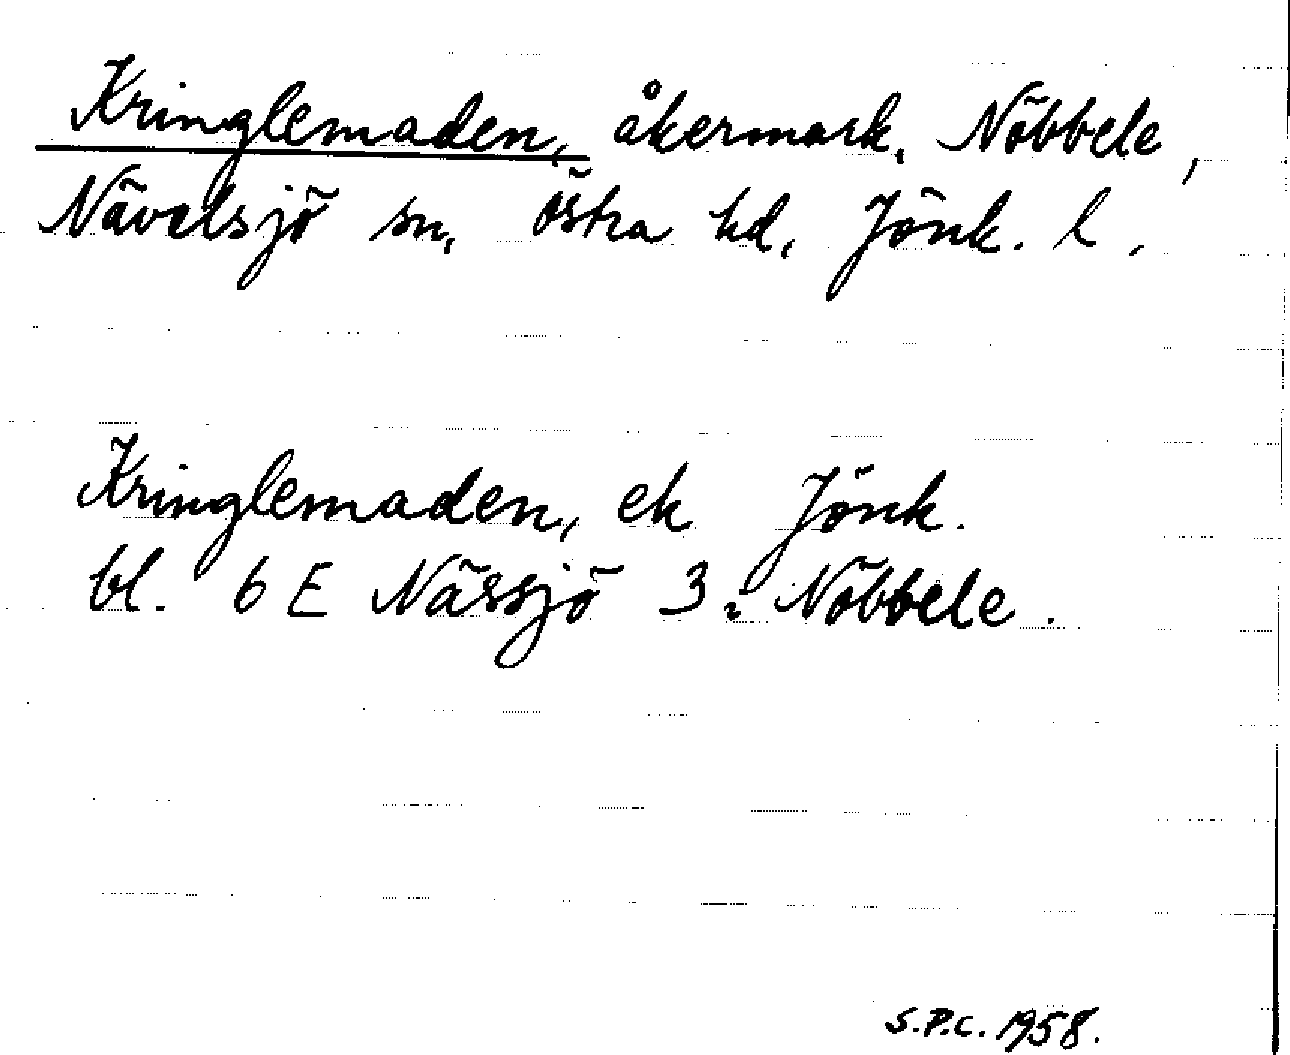 Kringlemaden, åkermark, Nöbbele,
Nävelsjö sn, Östra hd, Jönk. l.
Kringlemaden, ek Jönk.
bl. 6 E Nässjö 3: Nöbbele.
S.P.C. 1958.